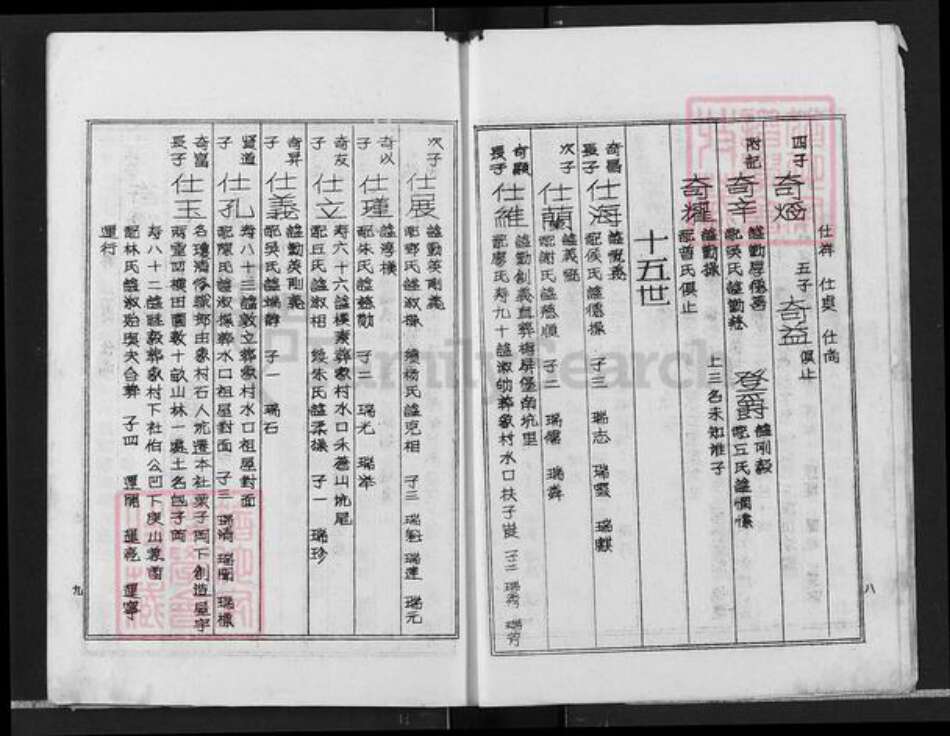 仕祥 仕奠 仕尚
四子 奇燔 五子 奇益 俱止
附記 奇辛 諡勤厚德善 配吳氏諡勤慈 登爵 諡剛毅 配丘氏諡憫懷
上三名未知誰子
奇耀 諡勤操 配曾氏俱止
十五世
奇富 長子 仕海 諡悅義 配侯氏諡德操 子三 瑞志 瑞 瑞麒
次子 仕蘭 諡義 配謝氏諡德順 子二 瑞儒 瑞舜
奇顯 長子 仕維 諡勤創義直葬梅屏堡角坑里
配廖氏寿九十諡淑幼葬象村水口扶子崀 子二 瑞秀 瑞芳
次子 仕展 諡勤英剛義
配鄭氏諡淑操 續楊氏諡克相 子三 瑞魁 瑞連 瑞元
奇以 子 仕瑾 諡淳樸
配朱氏諡慈勤 子二 瑞光 瑞
奇友 子 仕立 寿六十六諡樸素葬象村水口禾蒼山坑尾
配丘氏諡淑相 續朱氏諡柔儀 子一 瑞珍
奇昇 子 仕義 諡勤英剛義
配吳氏諡端靜 子一 瑞石
賢道 子 仕孔 寿八十三諡敦立葬象村水口祖屋對面
配陳氏諡淑操葬水口祖屋對面 子三 瑞 瑞聞 瑞樣
奇富 長子 仕玉 名瓊 由象村石人坑遷本社栗子崗下創造屋宇
兩重四橫田園數十畝山林一處土名包子崗
寿八十二諡 葬象村下社伯公凹下庚山兼酉
配林氏諡淑 與夫合葬 子四 運開 運亮 運寧
運行
八
九
FamilySearch